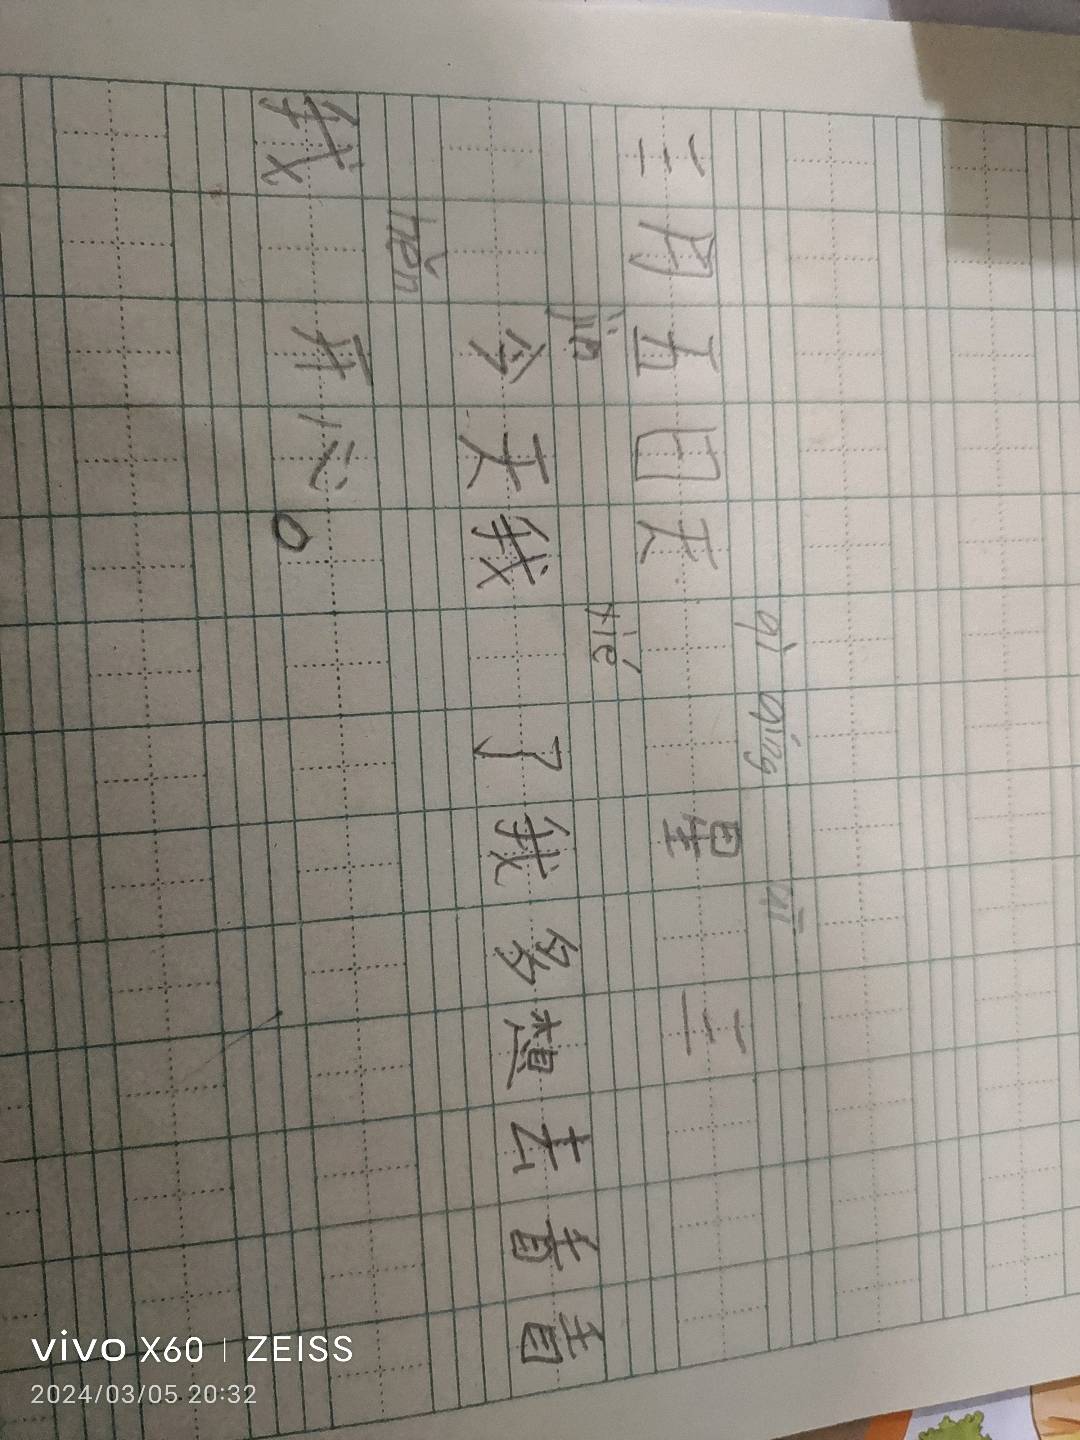 qì qíng
三月五日天 星 二
jin xié
今天我 了我多想去看看
hěn
我 开心。
vivo X60 | ZEISS
2024/03/05 20:32